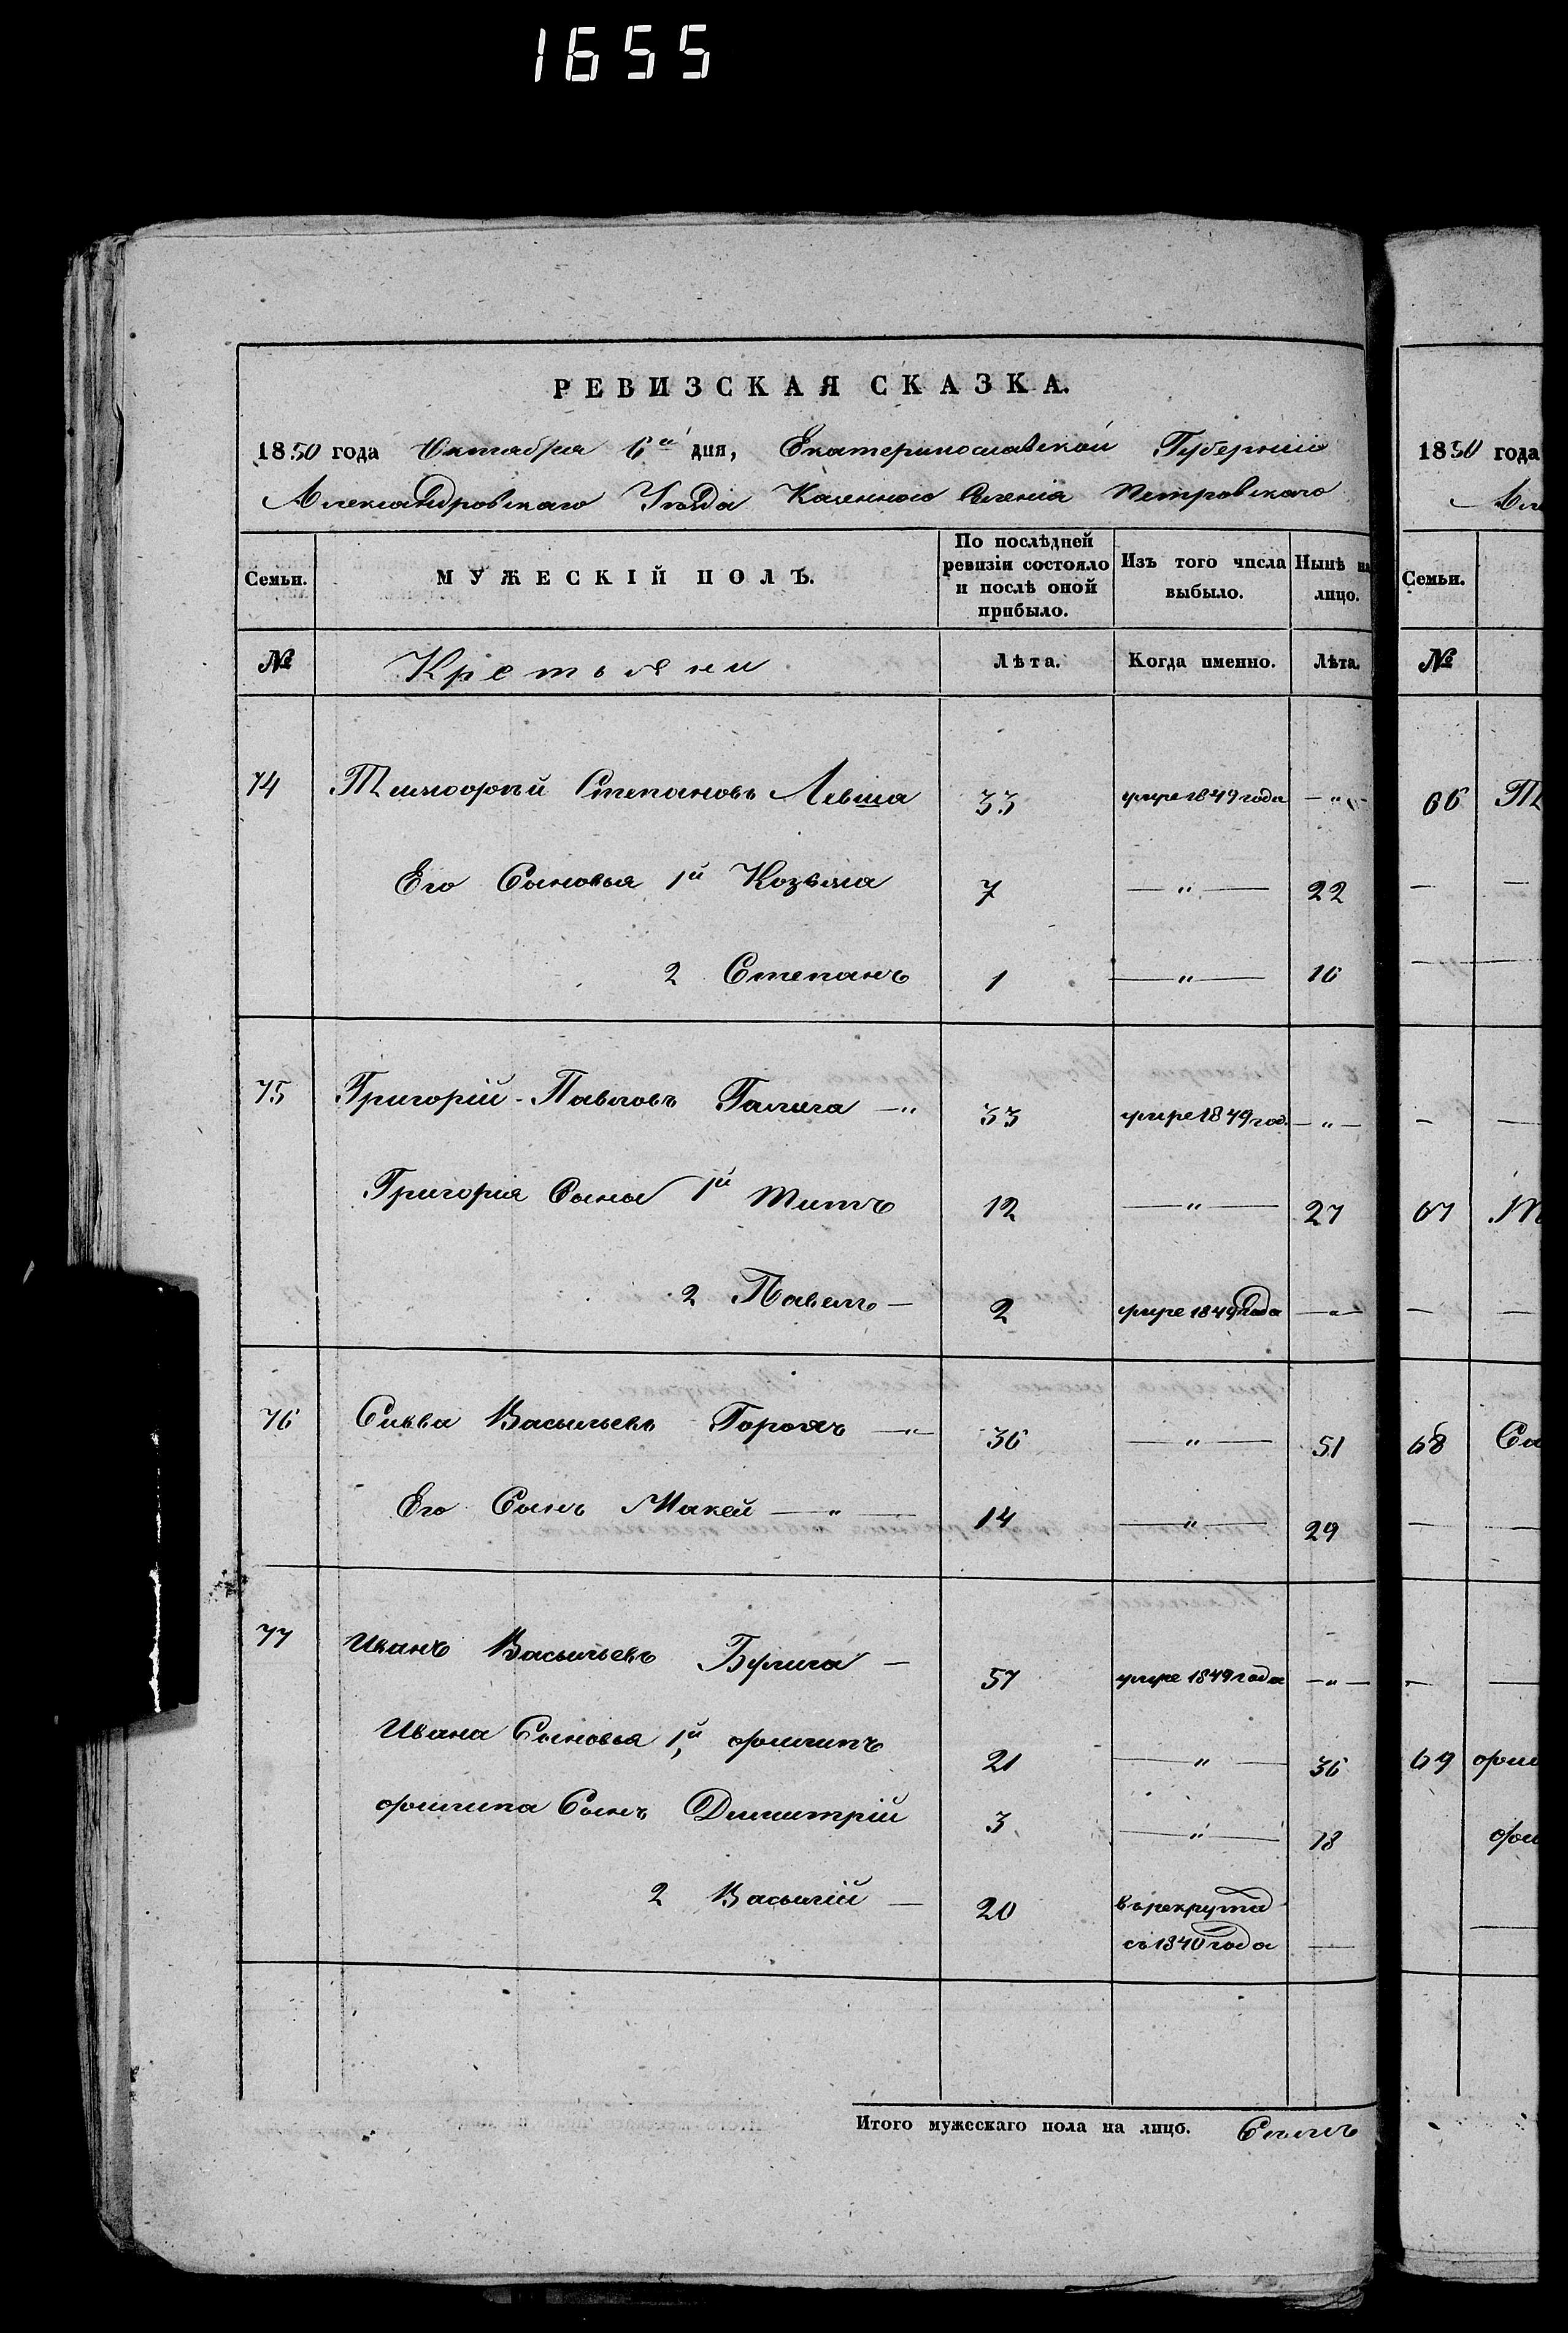 1655
РЕВИЗСКАЯ СКАЗКА.
1850 года Октября 6го дня, Екатеринославской Губерніи
Александровскаго Уѣзда Казеннаго Селенія Петровскаго
Семьи. МУЖЕСКІЙ ПОЛЪ. По послѣдней ревизіи состояло и послѣ оной прибыло. Изъ того числа выбыло. Нынѣ на лицо.
№ Крестьяни Лѣта. Когда именно. Лѣта.
74 Тимофѣй Степановъ Левша 33 умре 1849 года — " —
Его Сыновья 1й Козьма 7 — " — 22
2 Степанъ 1 — " — 16
75 Григорій Павловъ Галига — " 33 умре 1849 год. — " —
Григорія Сыны 1й Титъ 12 — " — 27
2 Павелъ — 2 умре 1849 года — " —
76 Савва Васильевъ — " — 36 — " — 51
Его Сынъ Макей — " — 14 — " — 29
77 Иванъ Васильевъ — 57 умре 1849 года — " —
Ивана Сыновья 1й филипъ 21 — " — 36
филипа Сынъ Димитрій 3 — " — 18
2 Василій — 20 въ рекрута
съ 1840 года —
Итого мужескаго пола на лицо. Семь
1850 года
Але
Семьи.
№
66
67
68 Са
69 фил
фил